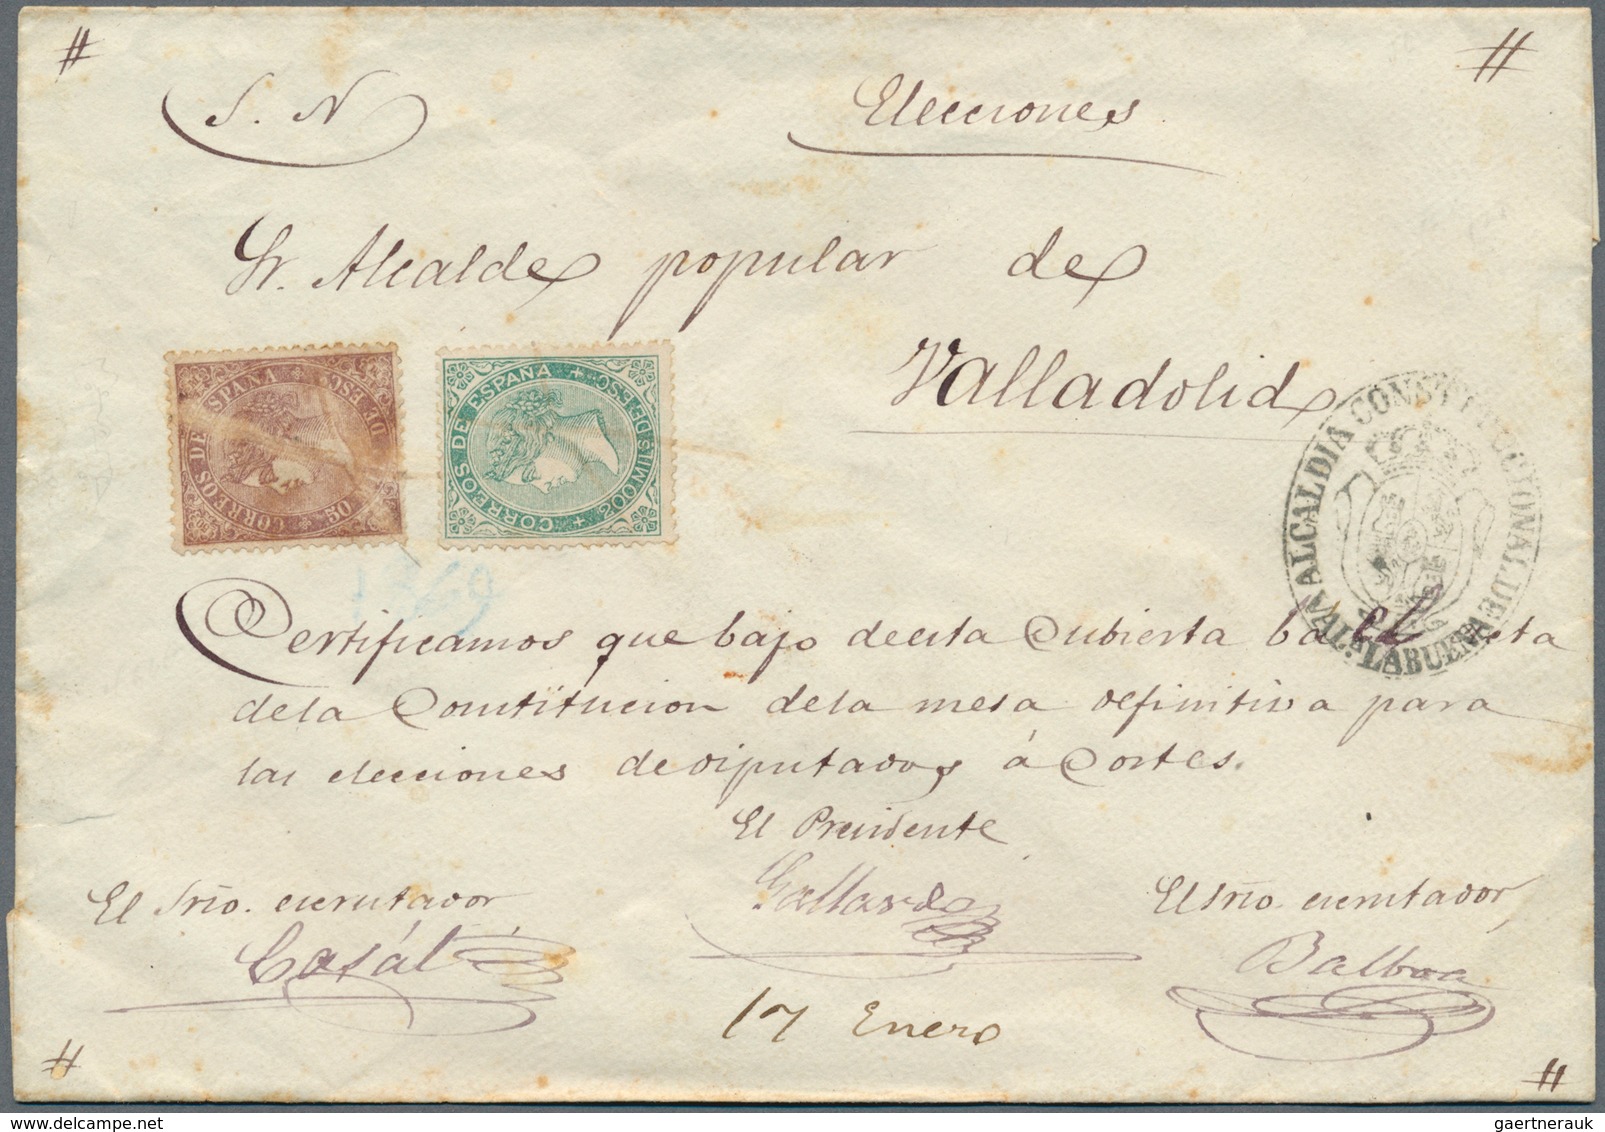 #
#
S. N
Elecciones
Sr. Alcalde popular de
Valladolid
CORREOS DE ESPAÑA
50 DE ESC
CORREOS DE ESPAÑA
200 MILS DE ESCO
ALCALDIA CONSTITUCIONAL DE
VALBUENA
Certificamos que bajo de esta Cubierta ba el Acta
de la Constitucion de la mesa definitiva para
las elecciones de diputados á Cortes.
El Presidente
Gallardo
El Srio. escrutador
Casál
El Srio. escrutador,
Balboa
17 Enero
#
#
gaertnerauk //